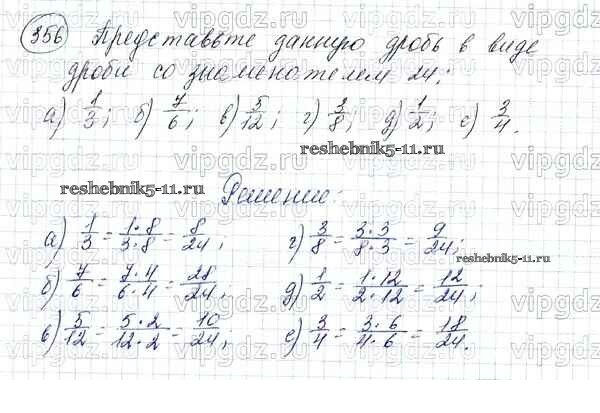 356 Представьте данную дробь в виде
дроби со знаменателем 24:
а) 1/3; б) 7/6; в) 5/12; г) 3/8; д) 1/2; е) 3/4.
reshebnik5-11.ru
reshebnik5-11.ru
Решение:
а) 1/3 = 1·8/3·8 = 8/24; г) 3/8 = 3·3/8·3 = 9/24;
reshebnik5-11.ru
б) 7/6 = 7·4/6·4 = 28/24; д) 1/2 = 1·12/2·12 = 12/24;
в) 5/12 = 5·2/12·2 = 10/24; е) 3/4 = 3·6/4·6 = 18/24.
vipgdz.ru